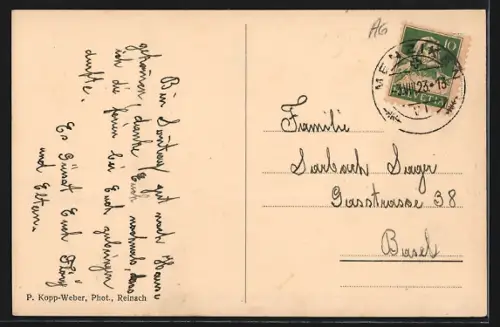 Bin Sonntag gut nach Hause
gekommen, danke Euch nochmals, dass
ich die ferien bei Euch zubringen
durfte.
Es Grüsst Euch
und Eltern.
P. Kopp-Weber, Phot., Reinach
AG
10
VIII.23.-13
HELVETIA
VI
Familie
Sarbach
Gasstrasse 38
Basel